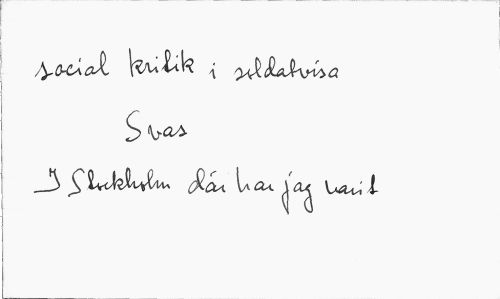 social kritik i soldatvisa
Svas
I Stockholm där har jag varit